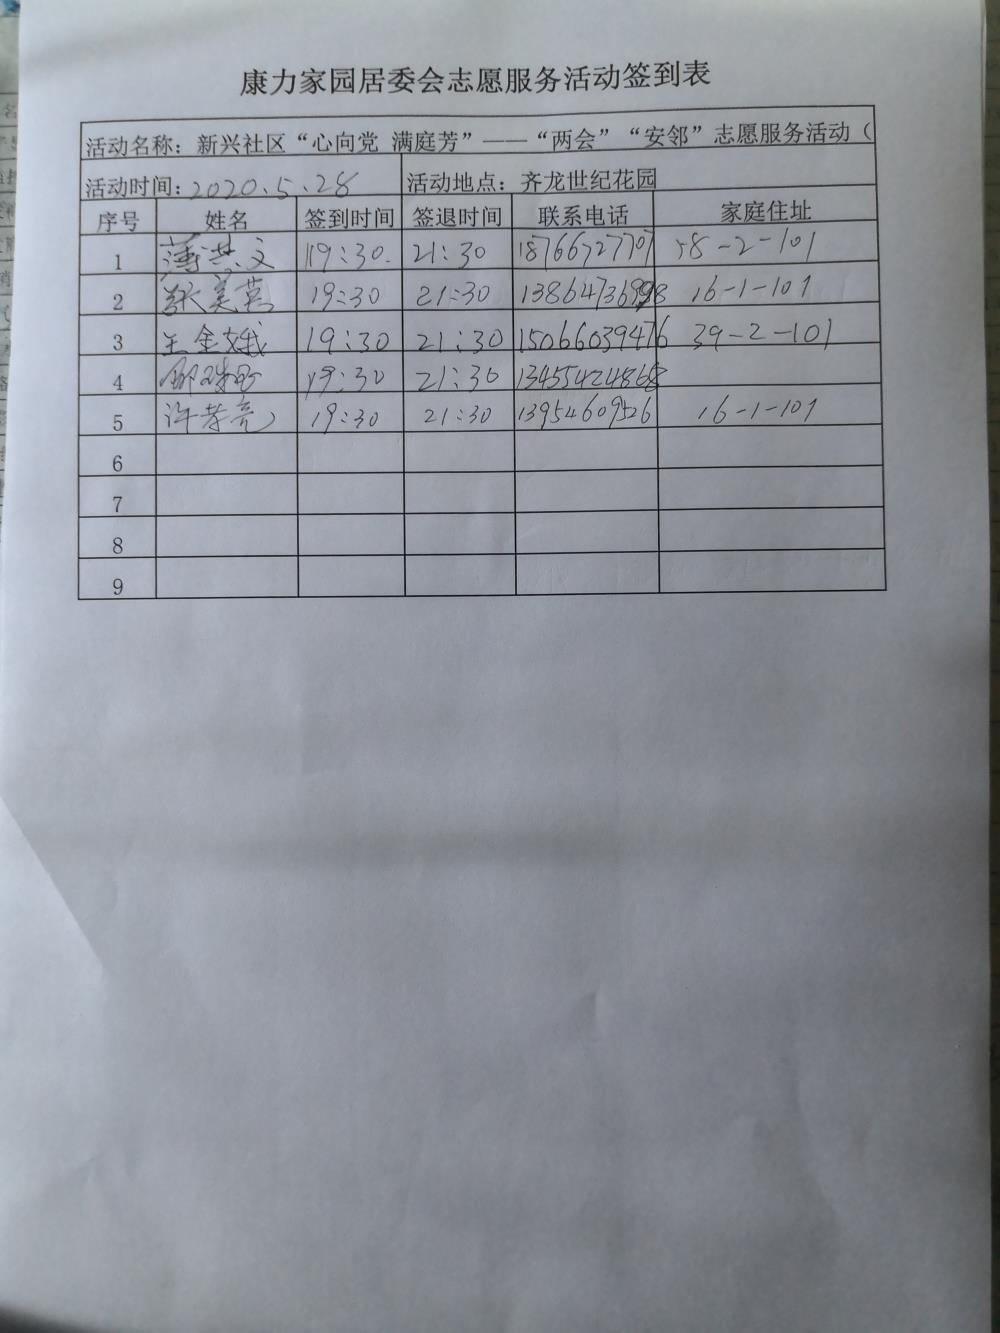 康力家园居委会志愿服务活动签到表
活动名称：新兴社区“心向党 满庭芳”——“两会”“安邻”志愿服务活动（
活动时间：2020.5.28 活动地点：齐龙世纪花园
序号 姓名 签到时间 签退时间 联系电话 家庭住址
1 薄其文 19:30 21:30 18766727707 58-2-101
2 张美英 19:30 21:30 16-1-101
3 王金娥 19:30 21:30 15066039476 39-2-101
4 19:30 21:30 13455424868
5 许孝亮 19:30 21:30 13954609526 16-1-101
6
7
8
9